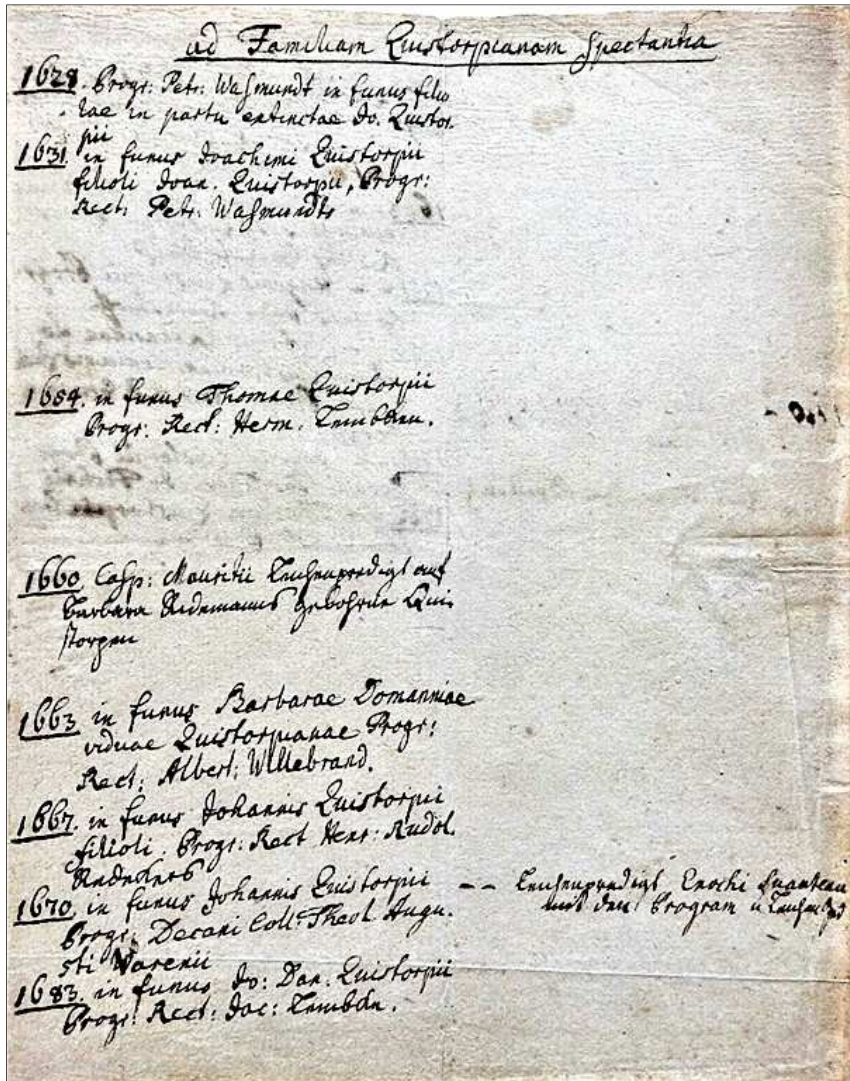 ad Familiam Quistorpianam Spectantia
1628. Progr: Petr: Waßmundt in funus filio
lae in partu extinctae Jo. Quistor.
pii
1631. in funus Joachimi Quistorpii
filioli Joan. Quistorpii, Progr:
Rect: Petr: Waßmundts
1654. in funus Thomae Quistorpii
Progr: Rect: Herm.
1660. Casp: Mauritii Leichenpredigt auf
Barbara gebohrne Qui-
storpen
1663. in funus Barbarae Domanniae
viduae Quistorpianae Progr:
Rect: Albert: Willebrand.
1667. in funus Johannis Quistorpii
filioli. Progr: Rect Henr: Rudol.
Redekers
1670. in funus Johannis Quistorpii -- Leichenpredigt Enochi
Progr: Decani Coll: Theol. Augu. mit dem Program u
sti Varenii
1683. in funus Jo: Dan. Quistorpii
Progr: Rect: Jac: Lembdn.